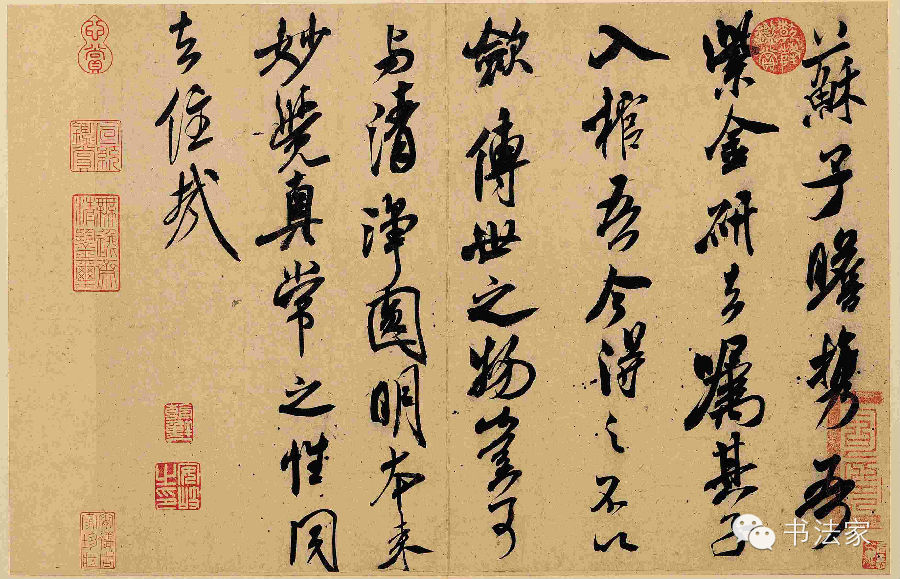 蘇子瞻携吾
紫金研去嘱其子
入棺吾今得之不以
斂傳世之物豈可
与清淨圓明本来
妙覺真常之性同
去住哉
书法家